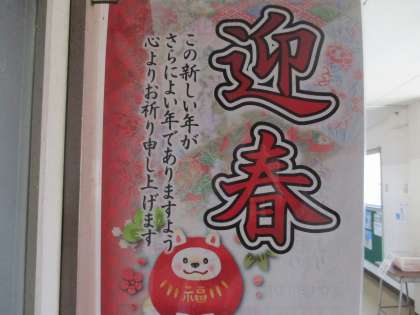 迎春
この新しい年が
さらによい年でありますよう
心よりお祈り申し上げます
福